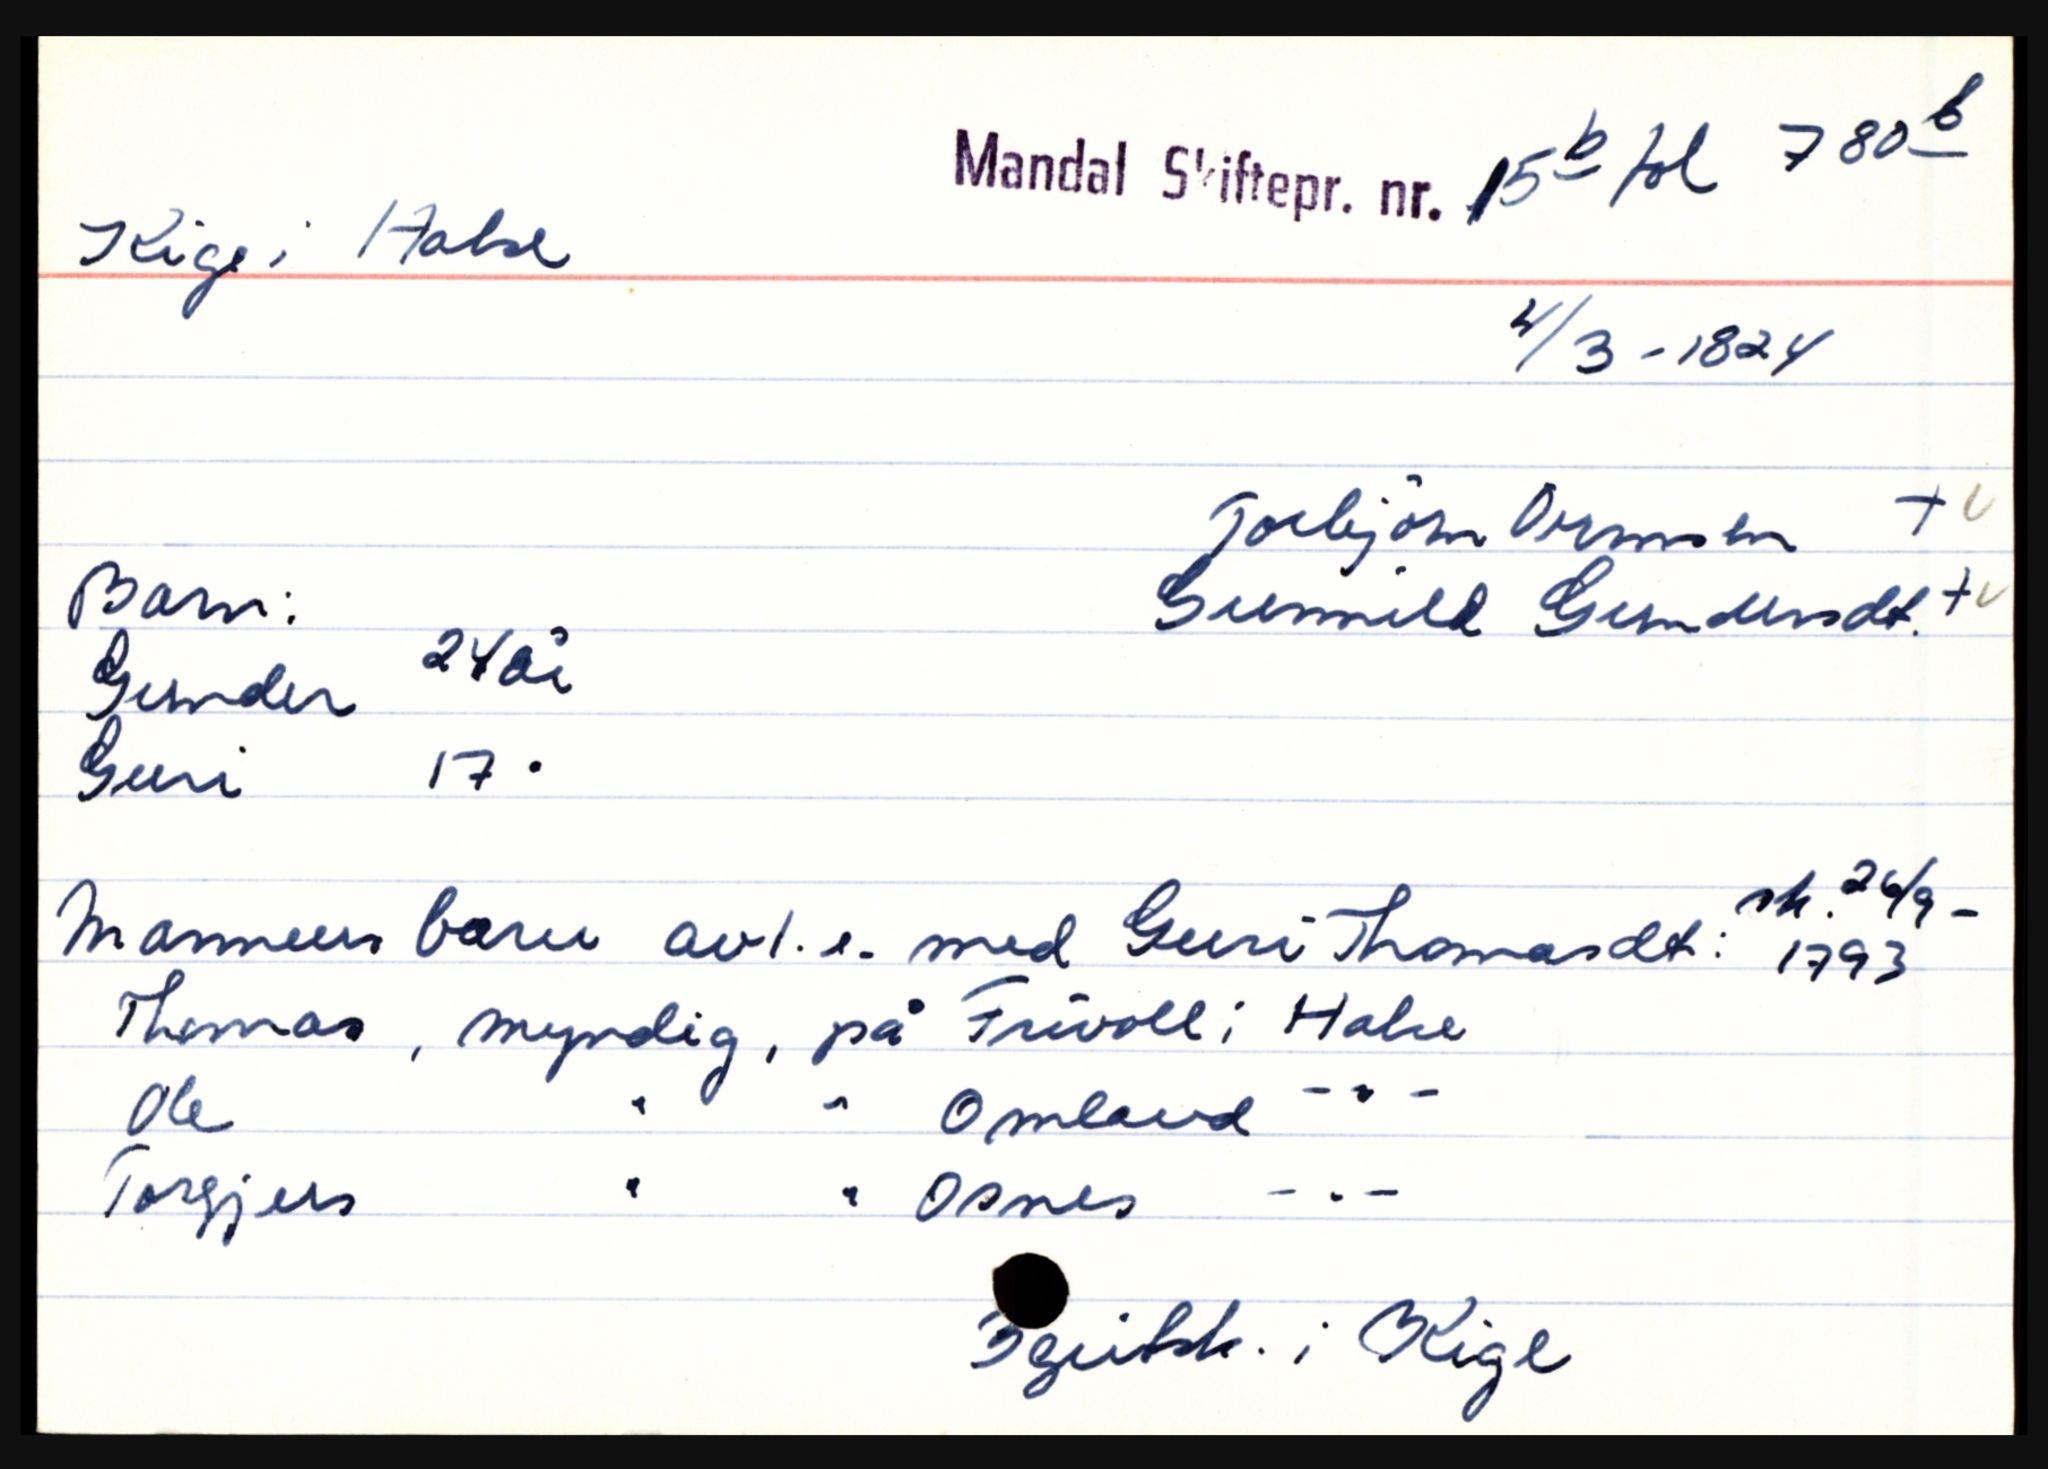 Mandal Skiftepr. nr. 15b fol 780b
Kige i Halse
4/3 - 1824
Torbjörn Ormsen +
Gunnild Gundersdt. +
Barn:
Gunder 24 år
Guri 17 "
Mannens barn av 1. e. med Guri Thomasdt: sk. 26/9 - 1793
Thomas, myndig, på Frivoll i Halse
Ole " " Omland - " -
Torgjers " " Osnes - " -
i Kige